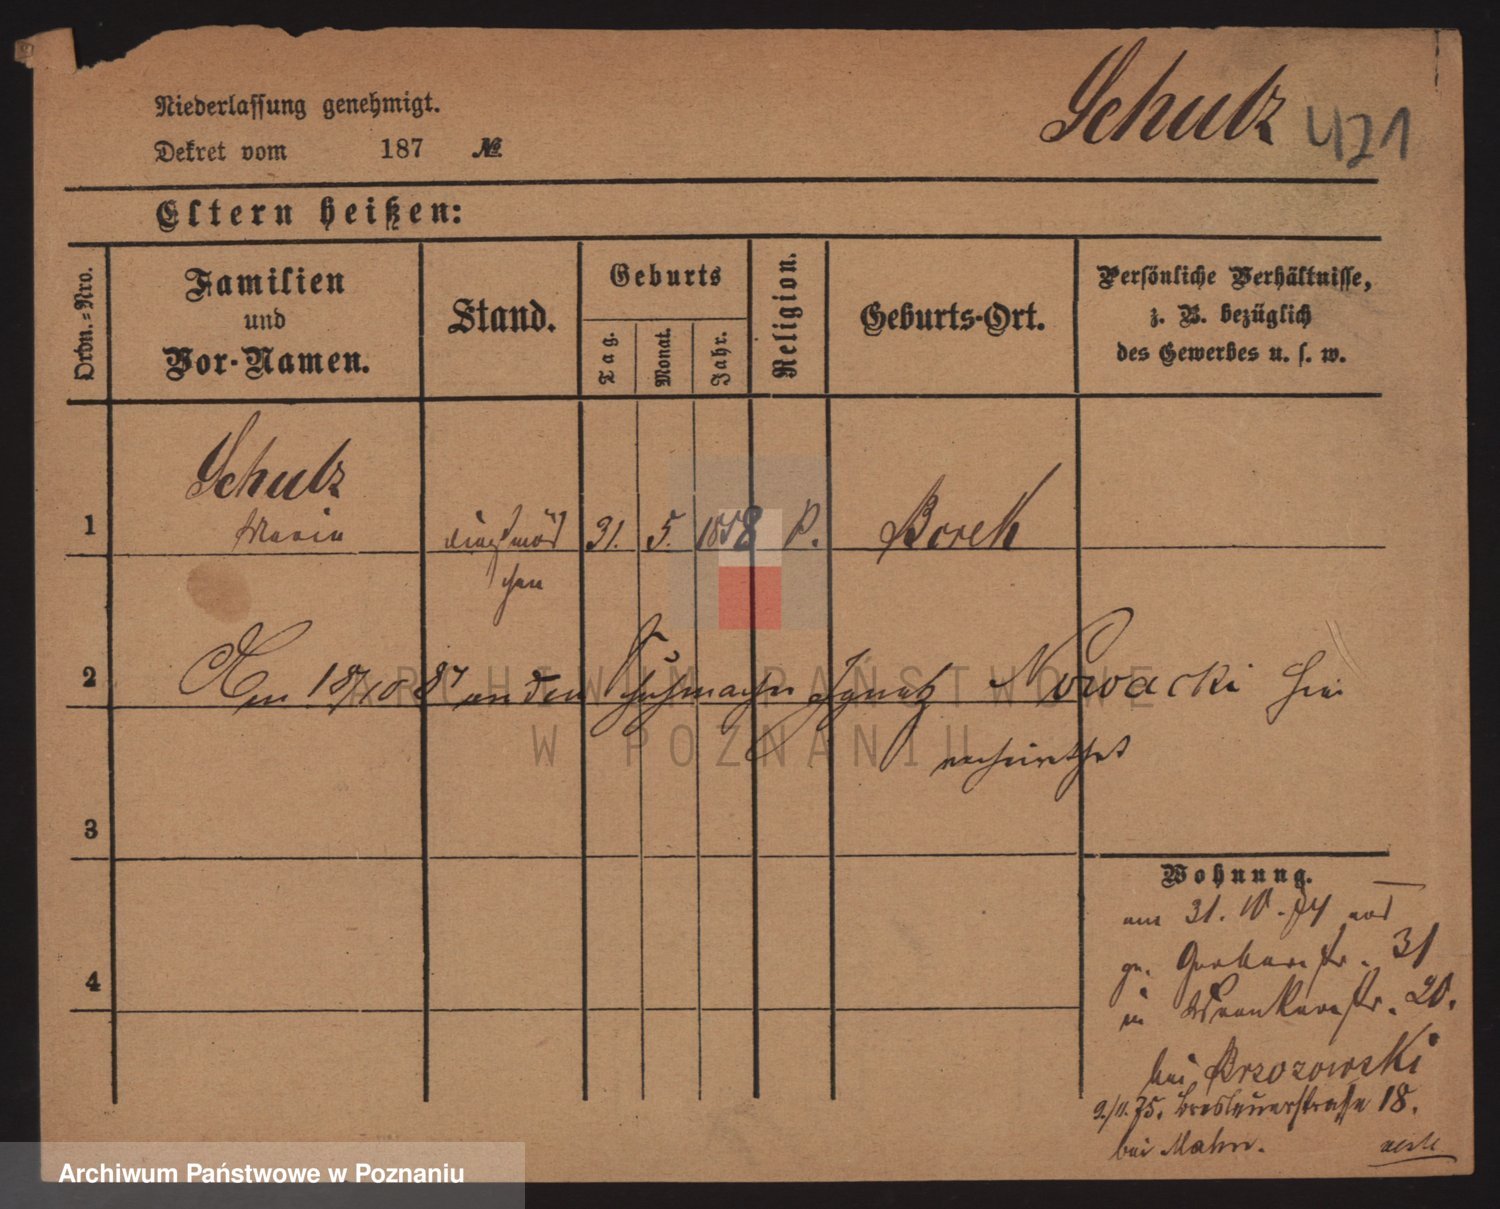 Schulz 421
Niederlassung genehmigt.
Dekret vom 187 №
Eltern heißen:
Ordn.-Nro.
Familien
und
Vor-Namen.
Stand.
Geburts
Tag.
Monat.
Jahr.
Religion.
Geburts-Ort.
Persönliche Verhältnisse,
z. B. bezüglich
des Gewerbes u. s. w.
Schulz
1 Maria dienstmäd 31. 5. 1858 P. Borek
chen
2 Am 18/10 87 an den Schuhmacher Ignatz Nowacki hier
verheirathet
3
4
Wohnung.
am 31. 10. 74 von
gr. Gerberstr. 31
in Wronkerstr. 20.
bei Brzozowski
9./11. 75. Breslauerstrasse 18.
bei Mahn.
ARCHIWUM PAŃSTWOWE
W POZNANIU
Archiwum Państwowe w Poznaniu